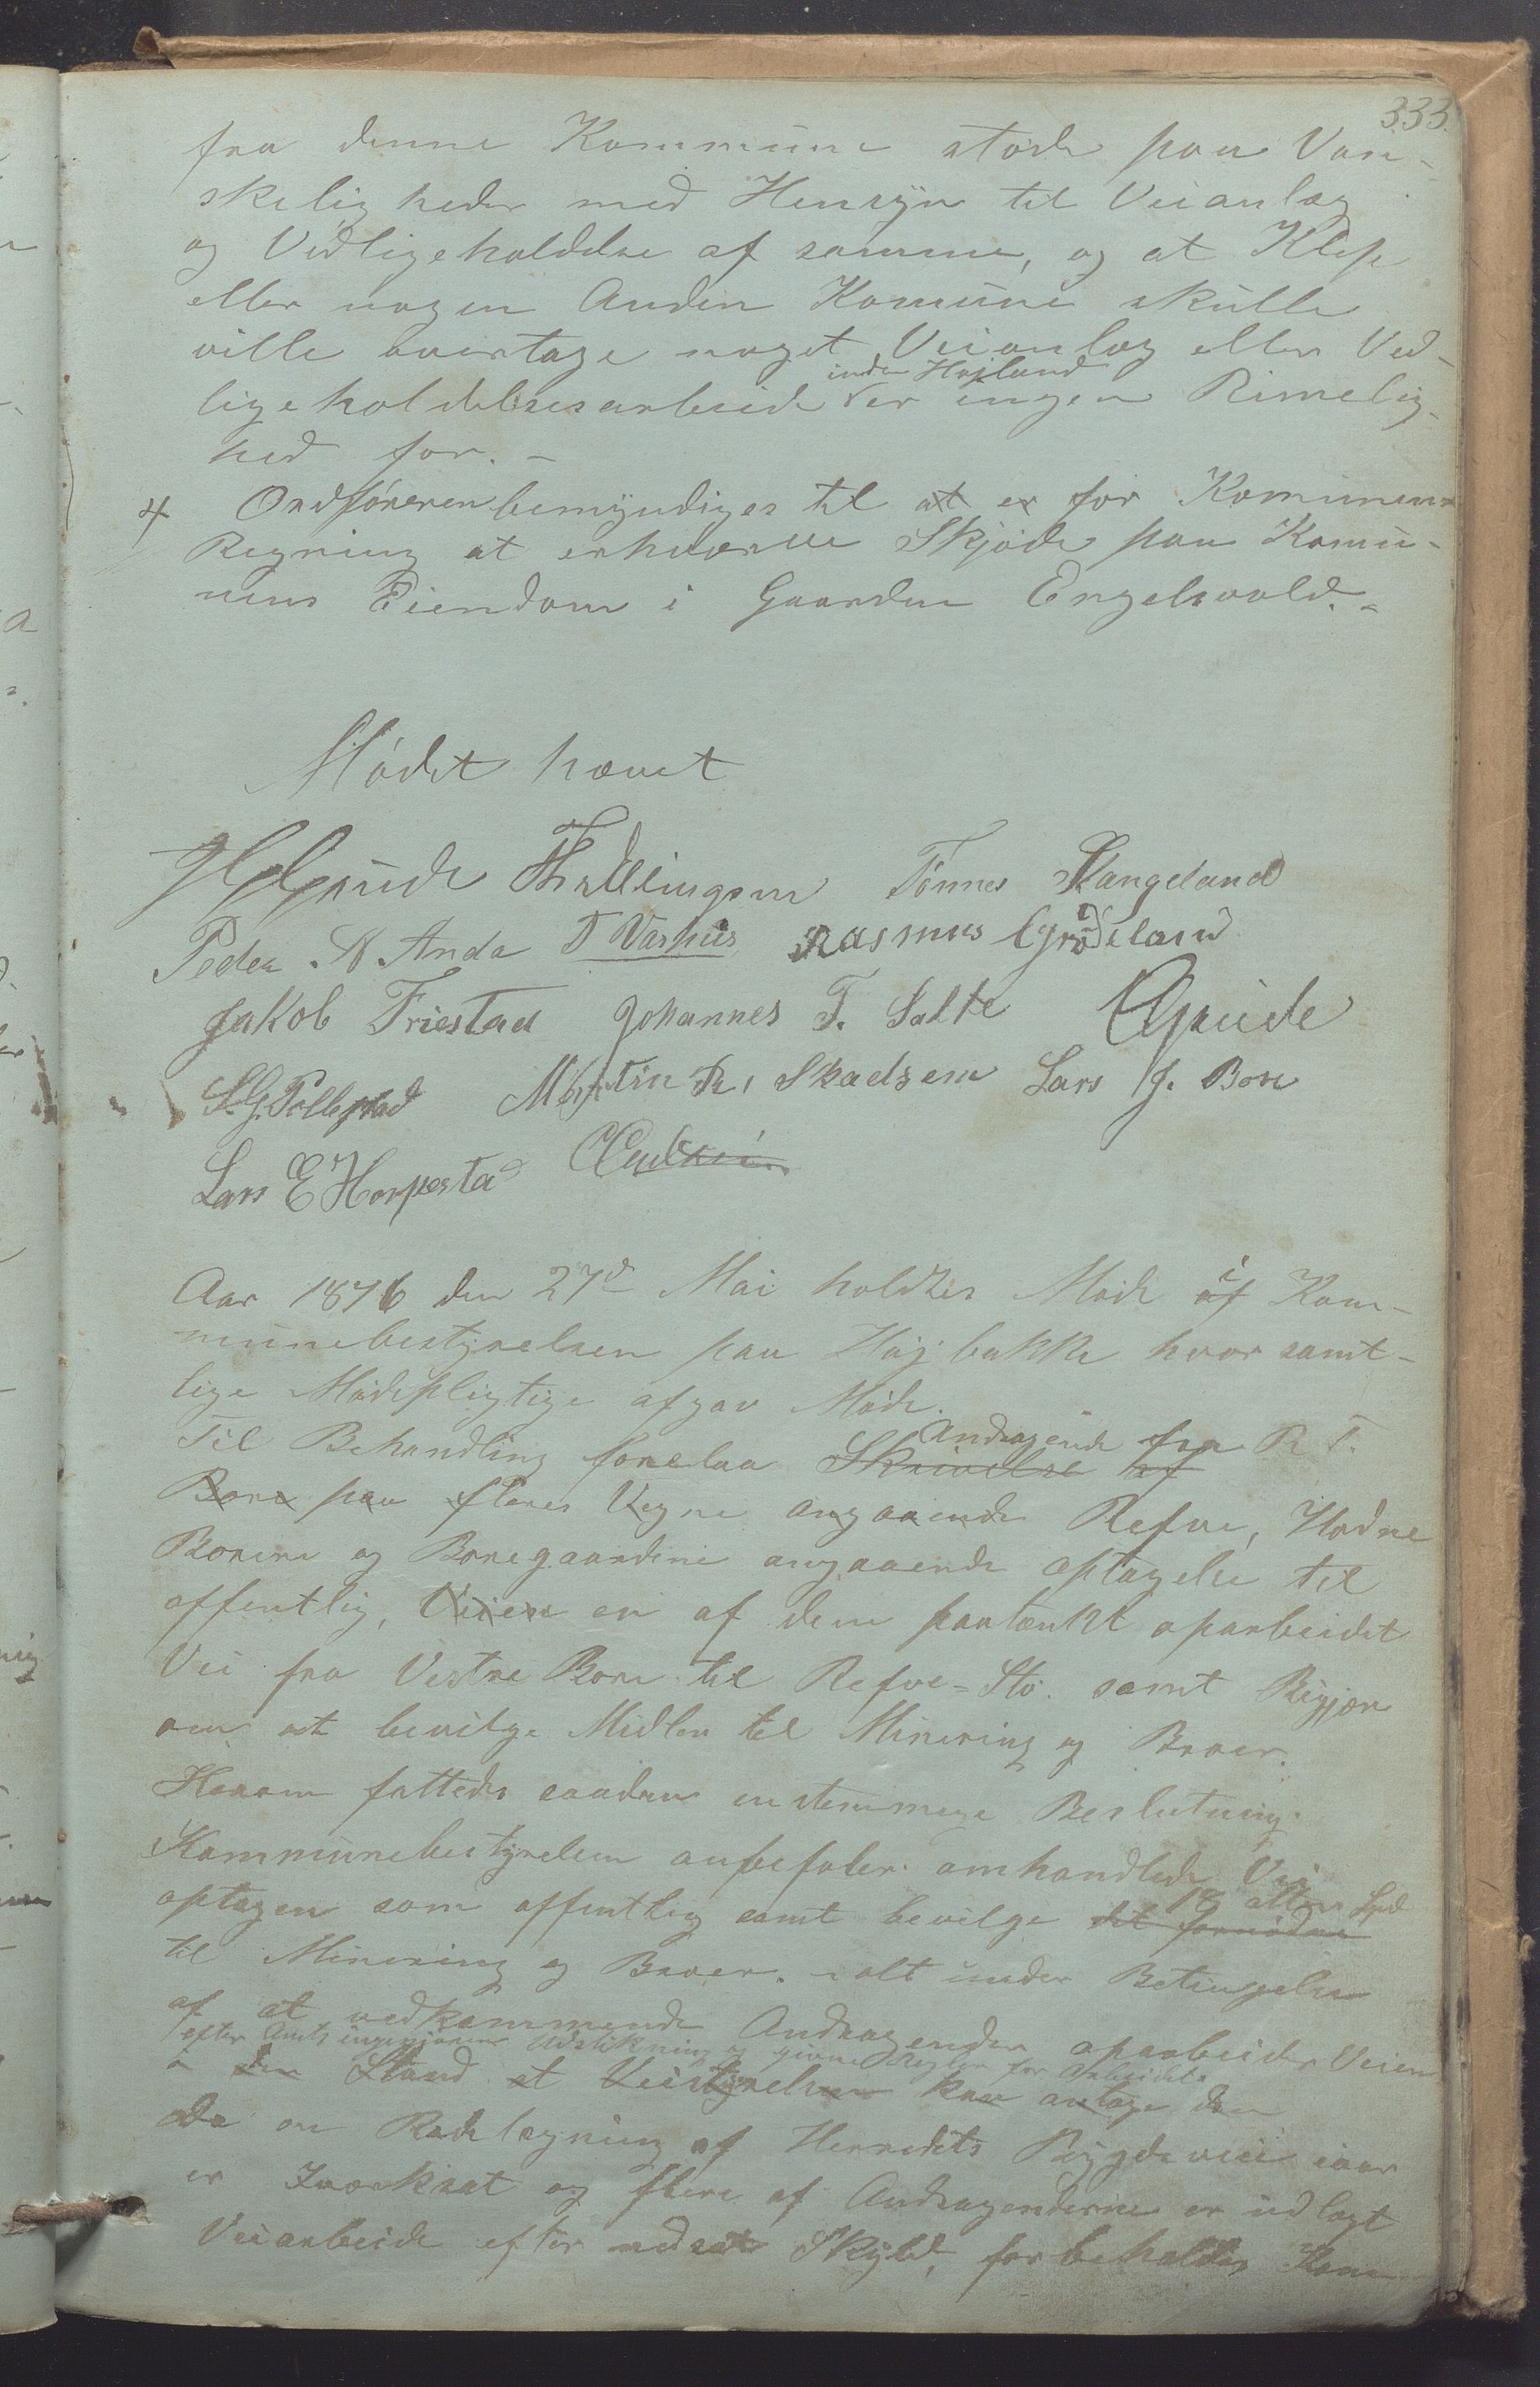 333.
fra denne Kommune støde paa Van-
skeligheder med Hensyn til Veianlæg
og Vedligeholdelse af samme, og at Klep
eller nogen Anden Komune skulle
ville overtage noget Veianlæg eller Ved-
inden Høiland
ligeholdelsesarbeide er ingen Rimelig-
hed for. -
4 Ordføreren bemyndiges til at er for Komunens
Regning at erhverve Skjøde paa Komu-
nens Eiendom i Gaarden Engelsvold. -
Mødet hævet
Grude Tønnes Skangeland
Peder N. Anda T Varhus Rasmus Grødeland
Jakob Friestad Johannes T. Salte Grude
S. G. Pollestad Martin R. Skadsem Lars J. Bore
Lars E Horpestad
Aar 1876 den 27d Mai holdtes Møde af i Kom-
munebestyrelsen paa Højbakke hvor samt-
lige Mødepligtige afgav Møde.
Andragende fra R T.
Til Behandling forelaa Skrivelse af
Bore paa fleres Vegne angaaende Refve, Hodne
Borene og Boregaardene angaaende optagelse til
offentlig, Veien en af dem paatænkt oparbeidet
Vei fra Vestre Bore til Refve-Stø. samt Begjær
om at bevilge Midler til Minering og Broer.
Herom fattedes saadan enstemmige Beslutning.
Kommunebestyrelsen anbefaler omhandlede Vei
18 atten Spd
optagen som offentlig samt bevilge det fornødne
til Minering og Broer. - alt under Betingelse
af at vedkommende Andragender oparbeider Veien
efter Amtsingeniørens Udstikning og givne Regler for Arbeidet.
i den Stand at Veistyrelsen kan antage den
Da en Rodelægning af Herredets Bygdeveie iaar
er Iværksat og flere af Andragenderne er udlagt
Veiarbeide efter nedsat Skyld, forbeholder Kom-